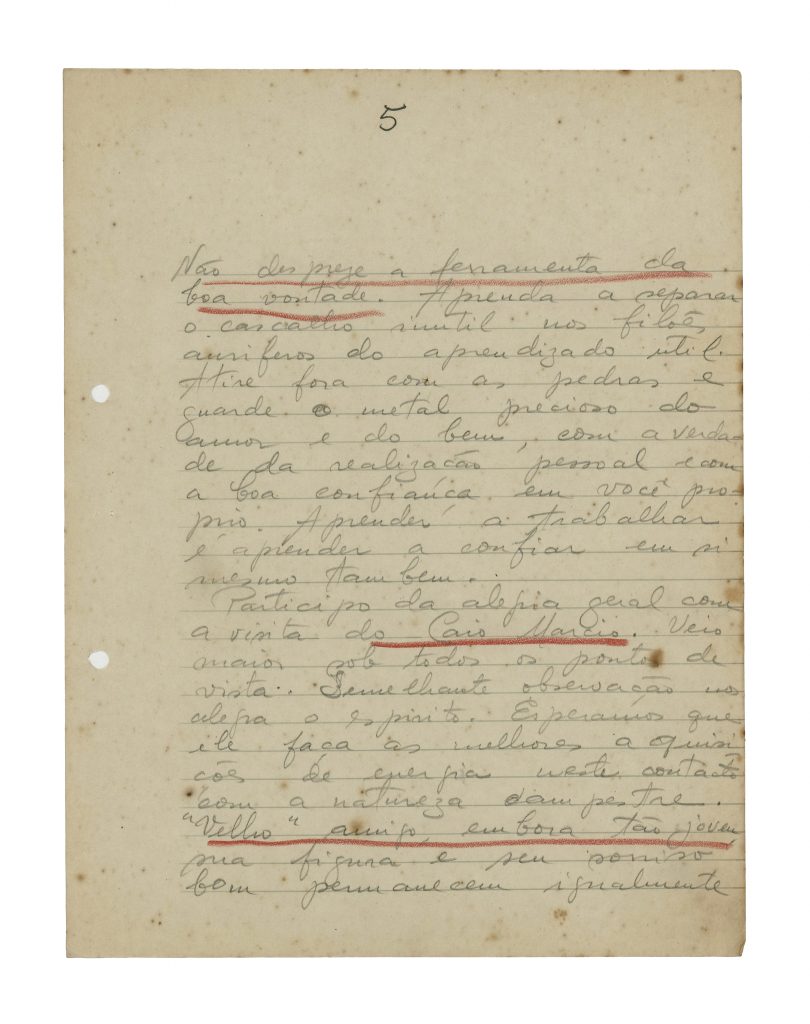 5
Não despreze a ferramenta da
boa vontade. Aprenda a separar
o cascalho inutil nos filões
auriferos do aprendizado util.
Atire fora com as pedras e
guarde o metal precioso do
amor e do bem, com a verda-
de da realização pessoal e com
a boa confiança em você pro-
prio. Aprender a trabalhar
é aprender a confiar em si
mesmo tambem.
Participo da alegria geral com
a visita do Caio Marcio. Veio
maior sob todos os pontos de
vista. Semelhante observação nos
alegra o espirito. Esperamos que
ele faça as melhores aquisi
ções de energia neste contacto
com a natureza campestre.
"Velho" amigo, embora tão jovem,
sua figura e seu sorriso
bom permanecem igualmente